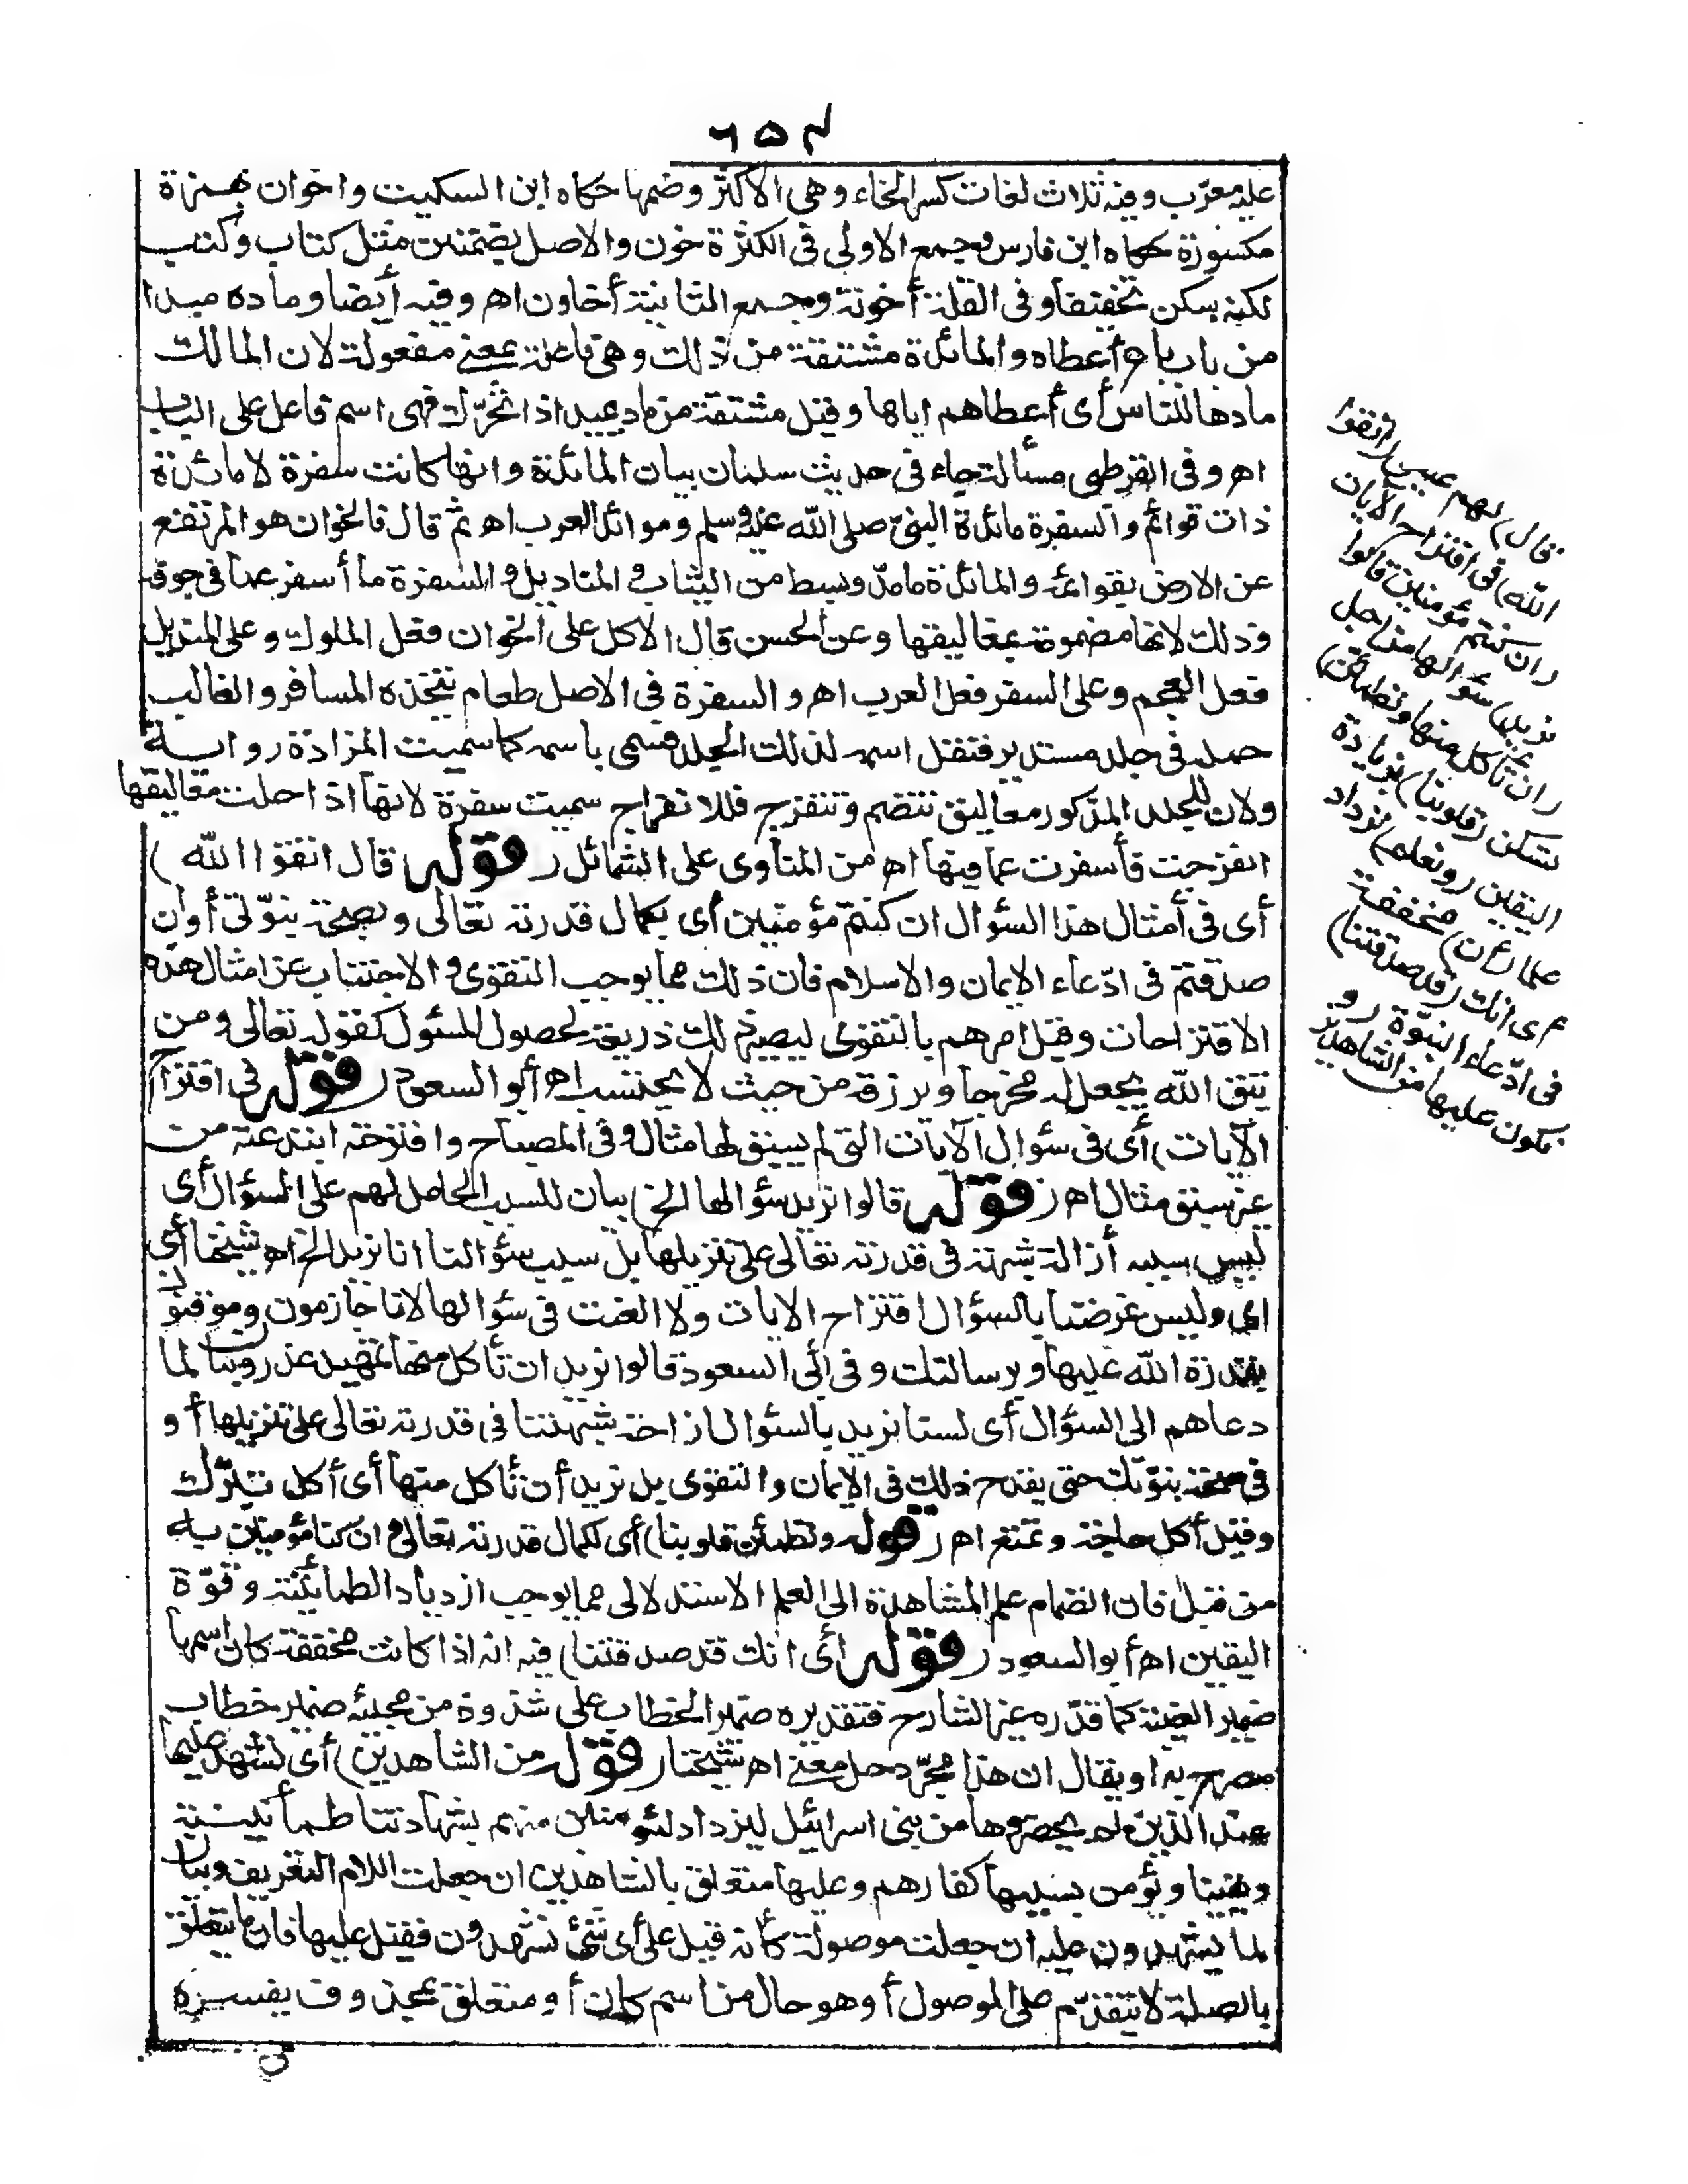 ٦٥٤
عليه معرّب وفيه ثلاث لغات كسر الخاء وهى الاكثر وضمها حكاه ابن السكيت واخوان بهمزة
مكسورة حكاه ابن فارس وجمع الاولى فى الكثرة خون والاصل بضمتين مثل كتاب وكتب
لكنه سكن تخفيفا وفى القلة أخونة وجمع الثانية أخاوين اهـ وفيه أيضا ومادة ميدا
من باب باع أعطاه والمائدة مشتقة من ذلك وهى فاعلة بمعنى مفعولة لان المالك
مادها للناس أى أعطاهم اياها وقيل مشتقة من ماد يميد اذا تحرّك فهى اسم فاعل على الباب
اهـ وفى القرطبى مسألة جاء فى حديث سلمان بيان المائدة وانها كانت سفرة لا مائدة
ذات قوائم والسفرة مائدة النبىّ صلى الله عليه وسلم وموائد العرب اهـ ثم قال فالخوان هو المرتفع
عن الارض بقوائمه والمائدة ما مدّ وبسط من الثياب والمناديل والسفرة ما أسفر عما فى جوفه
وذلك لانها مضمومة بمعاليقها وعن الحسن قال الاكل على الخوان فعل الملوك وعلى المنديل
فعل العجم وعلى السفر فعل العرب اهـ والسفرة فى الاصل طعام يتخذه المسافر والغالب
حمله فى جلد مستدير فنقل اسمه لذلك الجلد فسمى باسمه كما سميت المزادة رواية
ولان للجلد المذكور معاليق تنضم وتنفرج فللانفراج سميت سفرة لانها اذا حلت معاليقها
انفرجت فأسفرت عما فيها اهـ من المناوى على الشمائل (قوله قال اتقوا الله)
أى فى أمثال هذا السؤال ان كنتم مؤمنين أى بكمال قدرته تعالى وبصحة نبوّتى أو ان
صدقتم فى ادّعاء الايمان والاسلام فان ذلك مما يوجب التقوى والاجتناب عن امثال هذه
الاقتراحات وقيل امرهم بالتقوى ليصير ذلك ذريعة لحصول المسئول كقوله تعالى ومن
يتق الله يجعل له مخرجا ويرزقه من حيث لا يحتسب اهـ أبو السعود (قوله فى اقتراح
الآيات) أى فى سؤال الآيات التى لم يسبق لها مثال وفى المصباح واقترحته ابتدعته من
غير سبق مثال اهـ (قوله قالوا نريد سؤالها الخ) بيان للسبب الحامل لهم على السؤال أى
ليس سببه أزالة شبهة فى قدرته تعالى على تنزيلها بل سبب سؤالنا انا نريد الخ اهـ شيخنا أى
اى وليس غرضنا بالسؤال اقتراح الايات ولا العنت فى سؤالها لانا جازمون وموقنون
بقدرة الله عليها وبرسالتك وفى أبى السعود قالوا نريد ان نأكل منها تمهيد عذر وبيان لما
دعاهم الى السؤال أى لسنا نريد بالسؤال ازاحة شبهتنا فى قدرته تعالى على تنزيلها أو
فى صحة نبوّتك حتى يقدح ذلك فى الايمان والتقوى بل نريد أن نأكل منها أى أكل تبرّك
وقيل أكل حاجة وتمتع اهـ (قوله وتطمئن قلوبنا) أى لكمال قدرته تعالى وان كنا مؤمنين به
من قبل فان انضمام علم المشاهدة الى العلم الاستدلالى مما يوجب ازدياد الطمأنينة وقوّة
اليقين اهـ أبو السعود (قوله أى انك قد صدقتنا) فيه انه اذا كانت مخففة كان اسمها
ضمير الغيبة كما قدّره غير الشارح فتقديره ضمير الخطاب على شذوذ من مجيئه ضمير خطاب
مصرح به او يقال ان هذا مجرّد حل معنى اهـ شيخنا (قوله من الشاهدين) أى لنشهد عليها
عند الذين لم يحضروها من بنى اسرائيل ليزداد المؤمنين منهم بشهادتنا طمأنينة
ويقينا ويؤمن بسببها كفارهم وعليها متعلق بالشاهدين ان جعلت اللام للتعريف وبيان
لما يشهدون عليه ان جعلت موصولة كأنه قيل على أى شئ تشهدون فقيل عليها فان ما يتعلق
بالصلة لا يتقدّم على الموصول أو هو حال من اسم كان أو متعلق بمحذوف يفسره
قال) لهم عيسى (اتقوا
الله) فى اقتراح الايات
(ان كنتم مؤمنين قالوا
نريد) سؤالها من اجل
(ان نأكل منها وتطمئن)
تسكن (قلوبنا) بزيادة
اليقين (ونعلم) نزداد
علما (أن) مخففة
أى انك (قد صدقتنا)
فى ادّعاء النبوّة (و
نكون عليها من الشاهدين